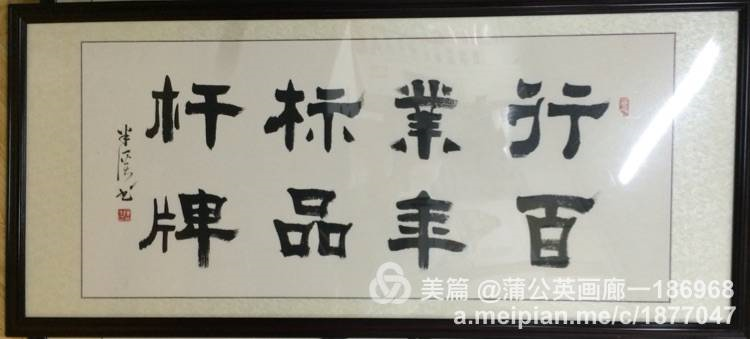 行業标杆
百年品牌
美篇 @蒲公英画廊一186968
a.meipian.me/c/1877047